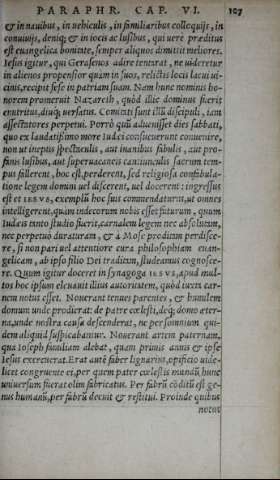 PARAPHR. CAP. VI. 107
& in nauibus, in uehiculis, in similiaribus colloquijs, in
conuiuijs, deniq; & in iocis ac lusibus, qui uere præditus
est euangelica bonitate, semper aliquos dimittit meliores.
Iesus igitur, qui Gerasenos adire tentarat, ne uideretur
in alienos propensior quàm in suos, relictis locis lacui ui-
cinis, recipit sese in patriam suam. Nam hunc nominis ho-
norem promeruit Nazareth, quòd illic dominus fuerit
enutritus, diuq; uersatus. Comitati sunt illũ discipuli, tam
assectatores perpetui. Porrò quũ aduenisset dies sabbati,
quo ex laudatissimo more Iudæi consueuerant conuenire,
non ut ineptis spectaculis, aut inanibus fabulis, aut pro-
fanis lusibus, aut superuacaneis cantiunculis sacrum tem-
pus fallerent, hoc est, perderent, sed religiosa confabula-
tione legem domini uel discerent, uel docerent: ingressus
est et IESVS, exemplũ hoc suis commendaturus, ut omnes
intelligerent, quàm indecorum nobis esset futurum, quum
Iudæis tanto studio fuerit, carnalem legem nec absolutam,
nec perpetuò duraturam, & à Mose proditam perdisce-
re, si non pari uel attentiore cura philosophiam euan-
gelicam, ab ipso filio Dei traditam, studeamus cognosce-
re. Quum igitur doceret in synagoga IESVS, apud mul-
tos hoc ipsum eleuauit illius autoritatem, quòd iuxta car-
nem notus esset. Nouerant tenues parentes, & humilem
domum unde prodierat: de patre cœlesti, deq; domo æter-
na, unde nostra causa descenderat, ne per somnium qui-
dem aliquid suspicabantur. Nouerant artem paternam,
qua Ioseph familiam alebat, quam primis annis & ipse
Iesus exercuerat. Erat autẽ faber lignarius, opificio uide-
licet congruente ei, per quem pater cœlestis mundũ hunc
uniuersum fuerat olim fabricatus. Per fabrũ cõditũ est ge-
nus humanũ, per fabrũ decuit & restitui. Proinde quibus
notus